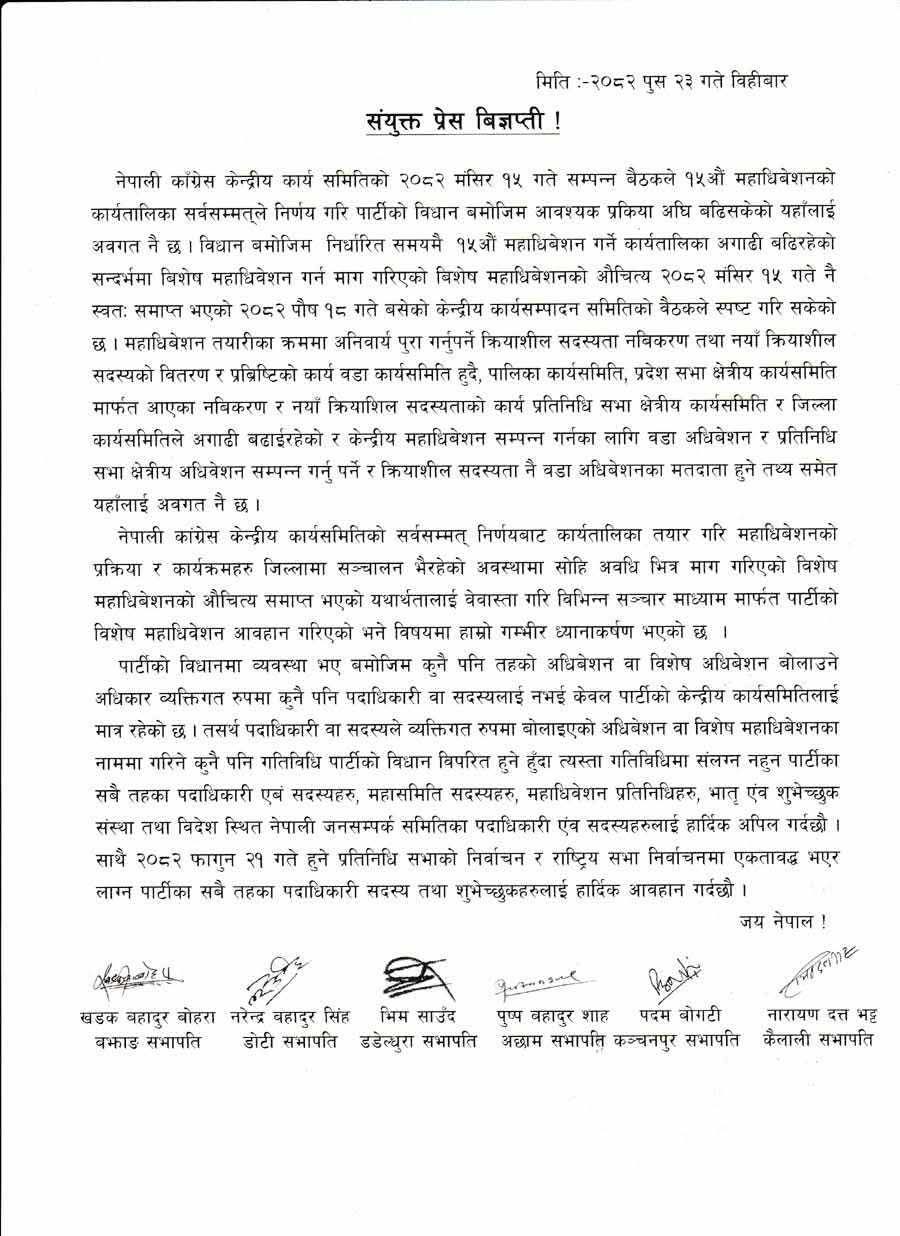 मिति :-२०८२ पुस २३ गते विहीबार
संयुक्त प्रेस बिज्ञप्ती !
नेपाली काँग्रेस केन्द्रीय कार्य समितिको २०८२ मंसिर १५ गते सम्पन्न बैठकले १५औं महाधिबेशनको
कार्यतालिका सर्वसम्मत्ले निर्णय गरि पार्टीको विधान बमोजिम आवश्यक प्रकिया अघि बढिसकेको यहाँलाई
अवगत नै छ । विधान बमोजिम निर्धारित समयमै १५औं महाधिबेशन गर्ने कार्यतालिका अगाढी बढिरहेको
सन्दर्भमा बिशेष महाधिवेशन गर्न माग गरिएको बिशेष महाधिबेशनको औचित्य २०८२ मंसिर १५ गते नै
स्वतः समाप्त भएको २०८२ पौष १८ गते बसेको केन्द्रीय कार्यसम्पादन समितिको वैठकले स्पष्ट गरि सकेको
छ । महाधिबेशन तयारीका क्रममा अनिवार्य पुरा गर्नुपर्ने क्रियाशील सदस्यता नबिकरण तथा नयाँ क्रियाशील
सदस्यको वितरण र प्रब्रिष्टिको कार्य वडा कार्यसमिति हुदै, पालिका कार्यसमिति, प्रदेश सभा क्षेत्रीय कार्यसमिति
मार्फत आएका नबिकरण र नयाँ क्रियाशिल सदस्यताको कार्य प्रतिनिधि सभा क्षेत्रीय कार्यसमिति र जिल्ला
कार्यसमितिले अगाढी बढाईरहेको र केन्द्रीय महाधिबेशन सम्पन्न गर्नका लागि वडा अधिबेशन र प्रतिनिधि
सभा क्षेत्रीय अधिवेशन सम्पन्न गर्नु पर्ने र क्रियाशील सदस्यता नै वडा अधिबेशनका मतदाता हुने तथ्य समेत
यहाँलाई अवगत नै छ ।
नेपाली कांग्रेस केन्द्रीय कार्यसमितिको सर्वसम्मत् निर्णयबाट कार्यतालिका तयार गरि महाधिबेशनको
प्रक्रिया र कार्यक्रमहरु जिल्लामा सञ्चालन भैरहेको अवस्थामा सोहि अवधि भित्र माग गरिएको विशेष
महाधिबेशनको औचित्य समाप्त भएको यथार्थतालाई वेवास्ता गरि विभिन्न सञ्चार माध्याम मार्फत पार्टीको
विशेष महाधिवेशन आवहान गरिएको भने विषयमा हाम्रो गम्भीर ध्यानाकर्षण भएको छ ।
पार्टीको विधानमा व्यवस्था भए बमोजिम कुनै पनि तहको अधिबेशन वा विशेष अधिबेशन बोलाउने
अधिकार व्यक्तिगत रुपमा कुनै पनि पदाधिकारी वा सदस्यलाई नभई केवल पार्टीको केन्द्रीय कार्यसमितिलाई
मात्र रहेको छ । तसर्थ पदाधिकारी वा सदस्यले व्यक्तिगत रुपमा बोलाइएको अधिबेशन वा विशेष महाधिबेशनका
नाममा गरिने कुनै पनि गतिविधि पार्टीको विधान विपरित हुने हुँदा त्यस्ता गतिविधिमा संलग्न नहुन पार्टीका
सबै तहका पदाधिकारी एबं सदस्यहरु, महासमिति सदस्यहरु, महाधिवेशन प्रतिनिधिहरु, भातृ एंव शुभेच्छुक
संस्था तथा विदेश स्थित नेपाली जनसम्पर्क समितिका पदाधिकारी एंव सदस्यहरुलाई हार्दिक अपिल गर्दछौ ।
साथै २०८२ फागुन २१ गते हुने प्रतिनिधि सभाको निर्वाचन र राष्ट्रिय सभा निर्वाचनमा एकतावद्ध भएर
लाग्न पार्टीका सबै तहका पदाधिकारी सदस्य तथा शुभेच्छुकहरुलाई हार्दिक आवहान गर्दछौ ।
जय नेपाल !
खडक बहादुर बोहरा नरेन्द्र बहादुर सिंह भिम साउँद पुष्प वहादुर शाह पदम बोगटी नारायण दत्त भट्ट
बझाङ सभापति डोटी सभापति डडेल्धुरा सभापति अछाम सभापति कञ्चनपुर सभापति कैलाली सभापति